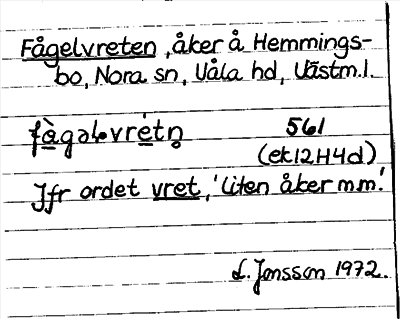 Fågelvreten, åker å Hemmings-
bo, Nora sn, Våla hd, Västm.l.
fàgəlvrétn̥ 561
(ek12H4d)
Jfr ordet vret, 'liten åker m m.'
L. Jonsson 1972.